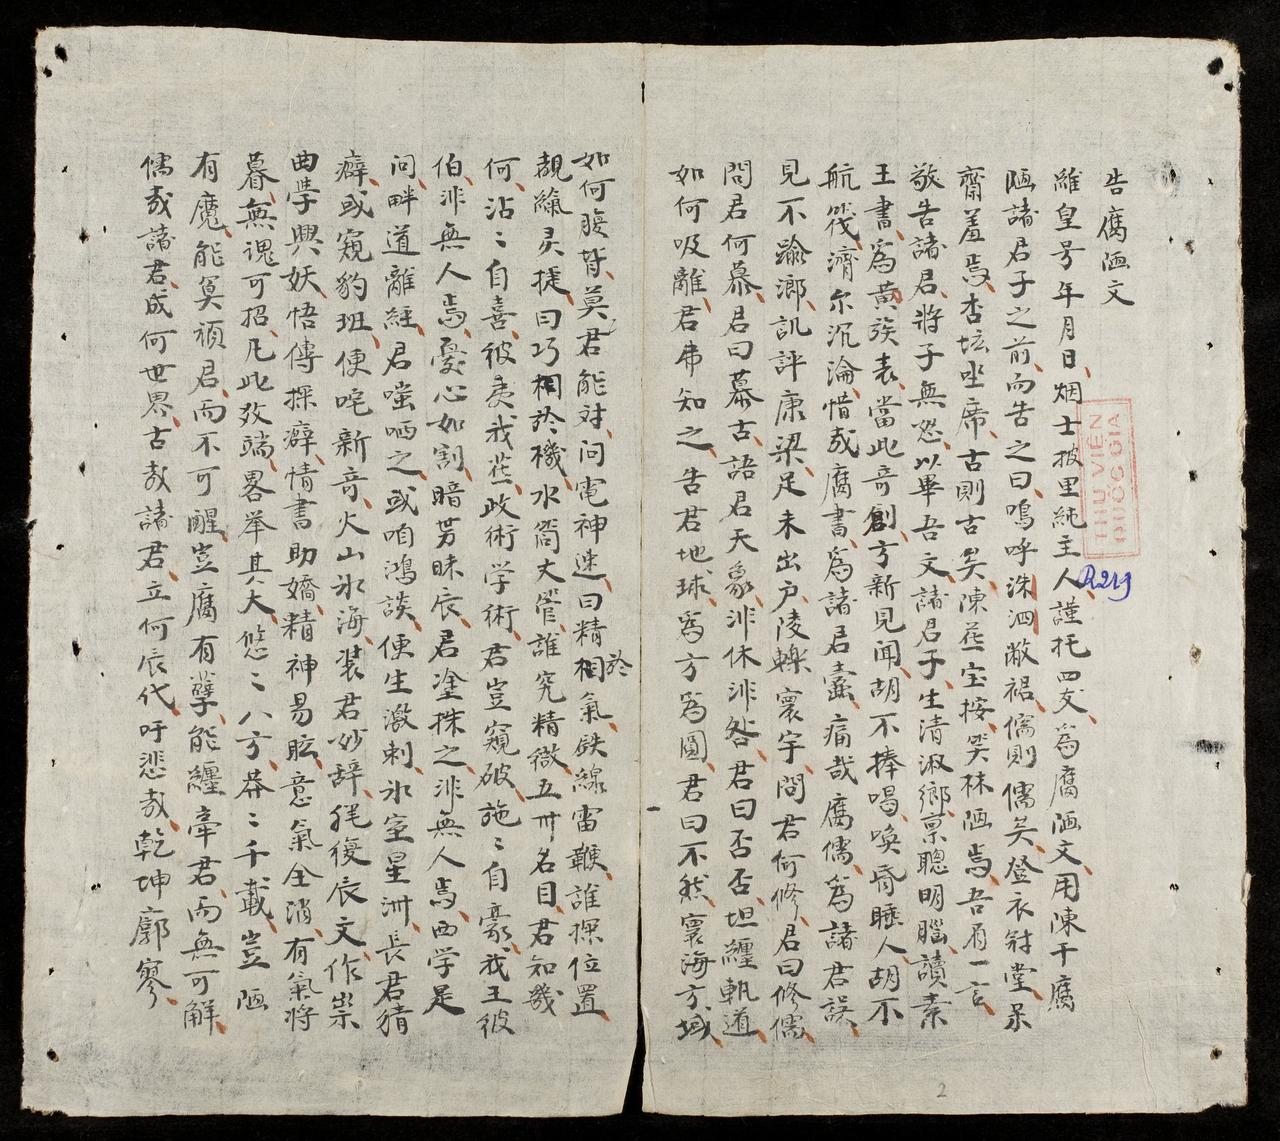 告腐陋文
維皇号年月日烟士披里純主人謹托四友為腐陋文用陳于腐
陋諸君子之前而告之曰嗚呼洙泗敝裾儒則儒矣登衣對堂呆
齋羞焉杏坛坐席古則古矣陳茲宝按哭林陋焉吾有一言
敬告諸君將子無怒以畢吾文諸君子生清淑鄉禀聰明腦讀素
王書為黃族表當此奇創方新見聞胡不捧喝喚昏睡人胡不
航筏濟尔沉淪惜哉腐書為諸君蠹痛哉腐儒為諸君誤
見不踰瀏訊評康梁足未出户陵轢寰宇問君何修君曰修儒
問君何慕君曰慕古語君天象非休非咎君曰否否坦纏軌道
如何吸離君弗知之告君地球為方為圓君曰不然寰海方域
如何腹背莫君能对问電神速曰精相於氣鉄線雷鞭誰探位置
覩艦灵捷曰巧相於機水筩大管誰究精微五卅名目君知幾
何沾〻自喜彼夷我茲政術学術君豈窺破施〻自豪我王彼
伯非無人焉憂心如割暗芳昧辰君塗抹之非無人焉西学是
问畔道離經君嗤哂之或咱鴻談便生激刺氷室星洲長君猜
癖或窺豹班便咤新奇火山氷海装君妙辞毷復辰文作祟
曲学興妖悟傳探癖情書助嬌精神易眩意氣全消有氣將
暮無魂可招凡此弊端畧举其大悠〻八方莽〻千載豈陋
有魔能冥頑君而不可醒豈腐有孽能纏牽君而無可解
儒哉諸君成何世界古哉諸君立何辰代吁悲哉乾坤廓寥
THƯ VIỆN
QUỐC GIA
R219
2